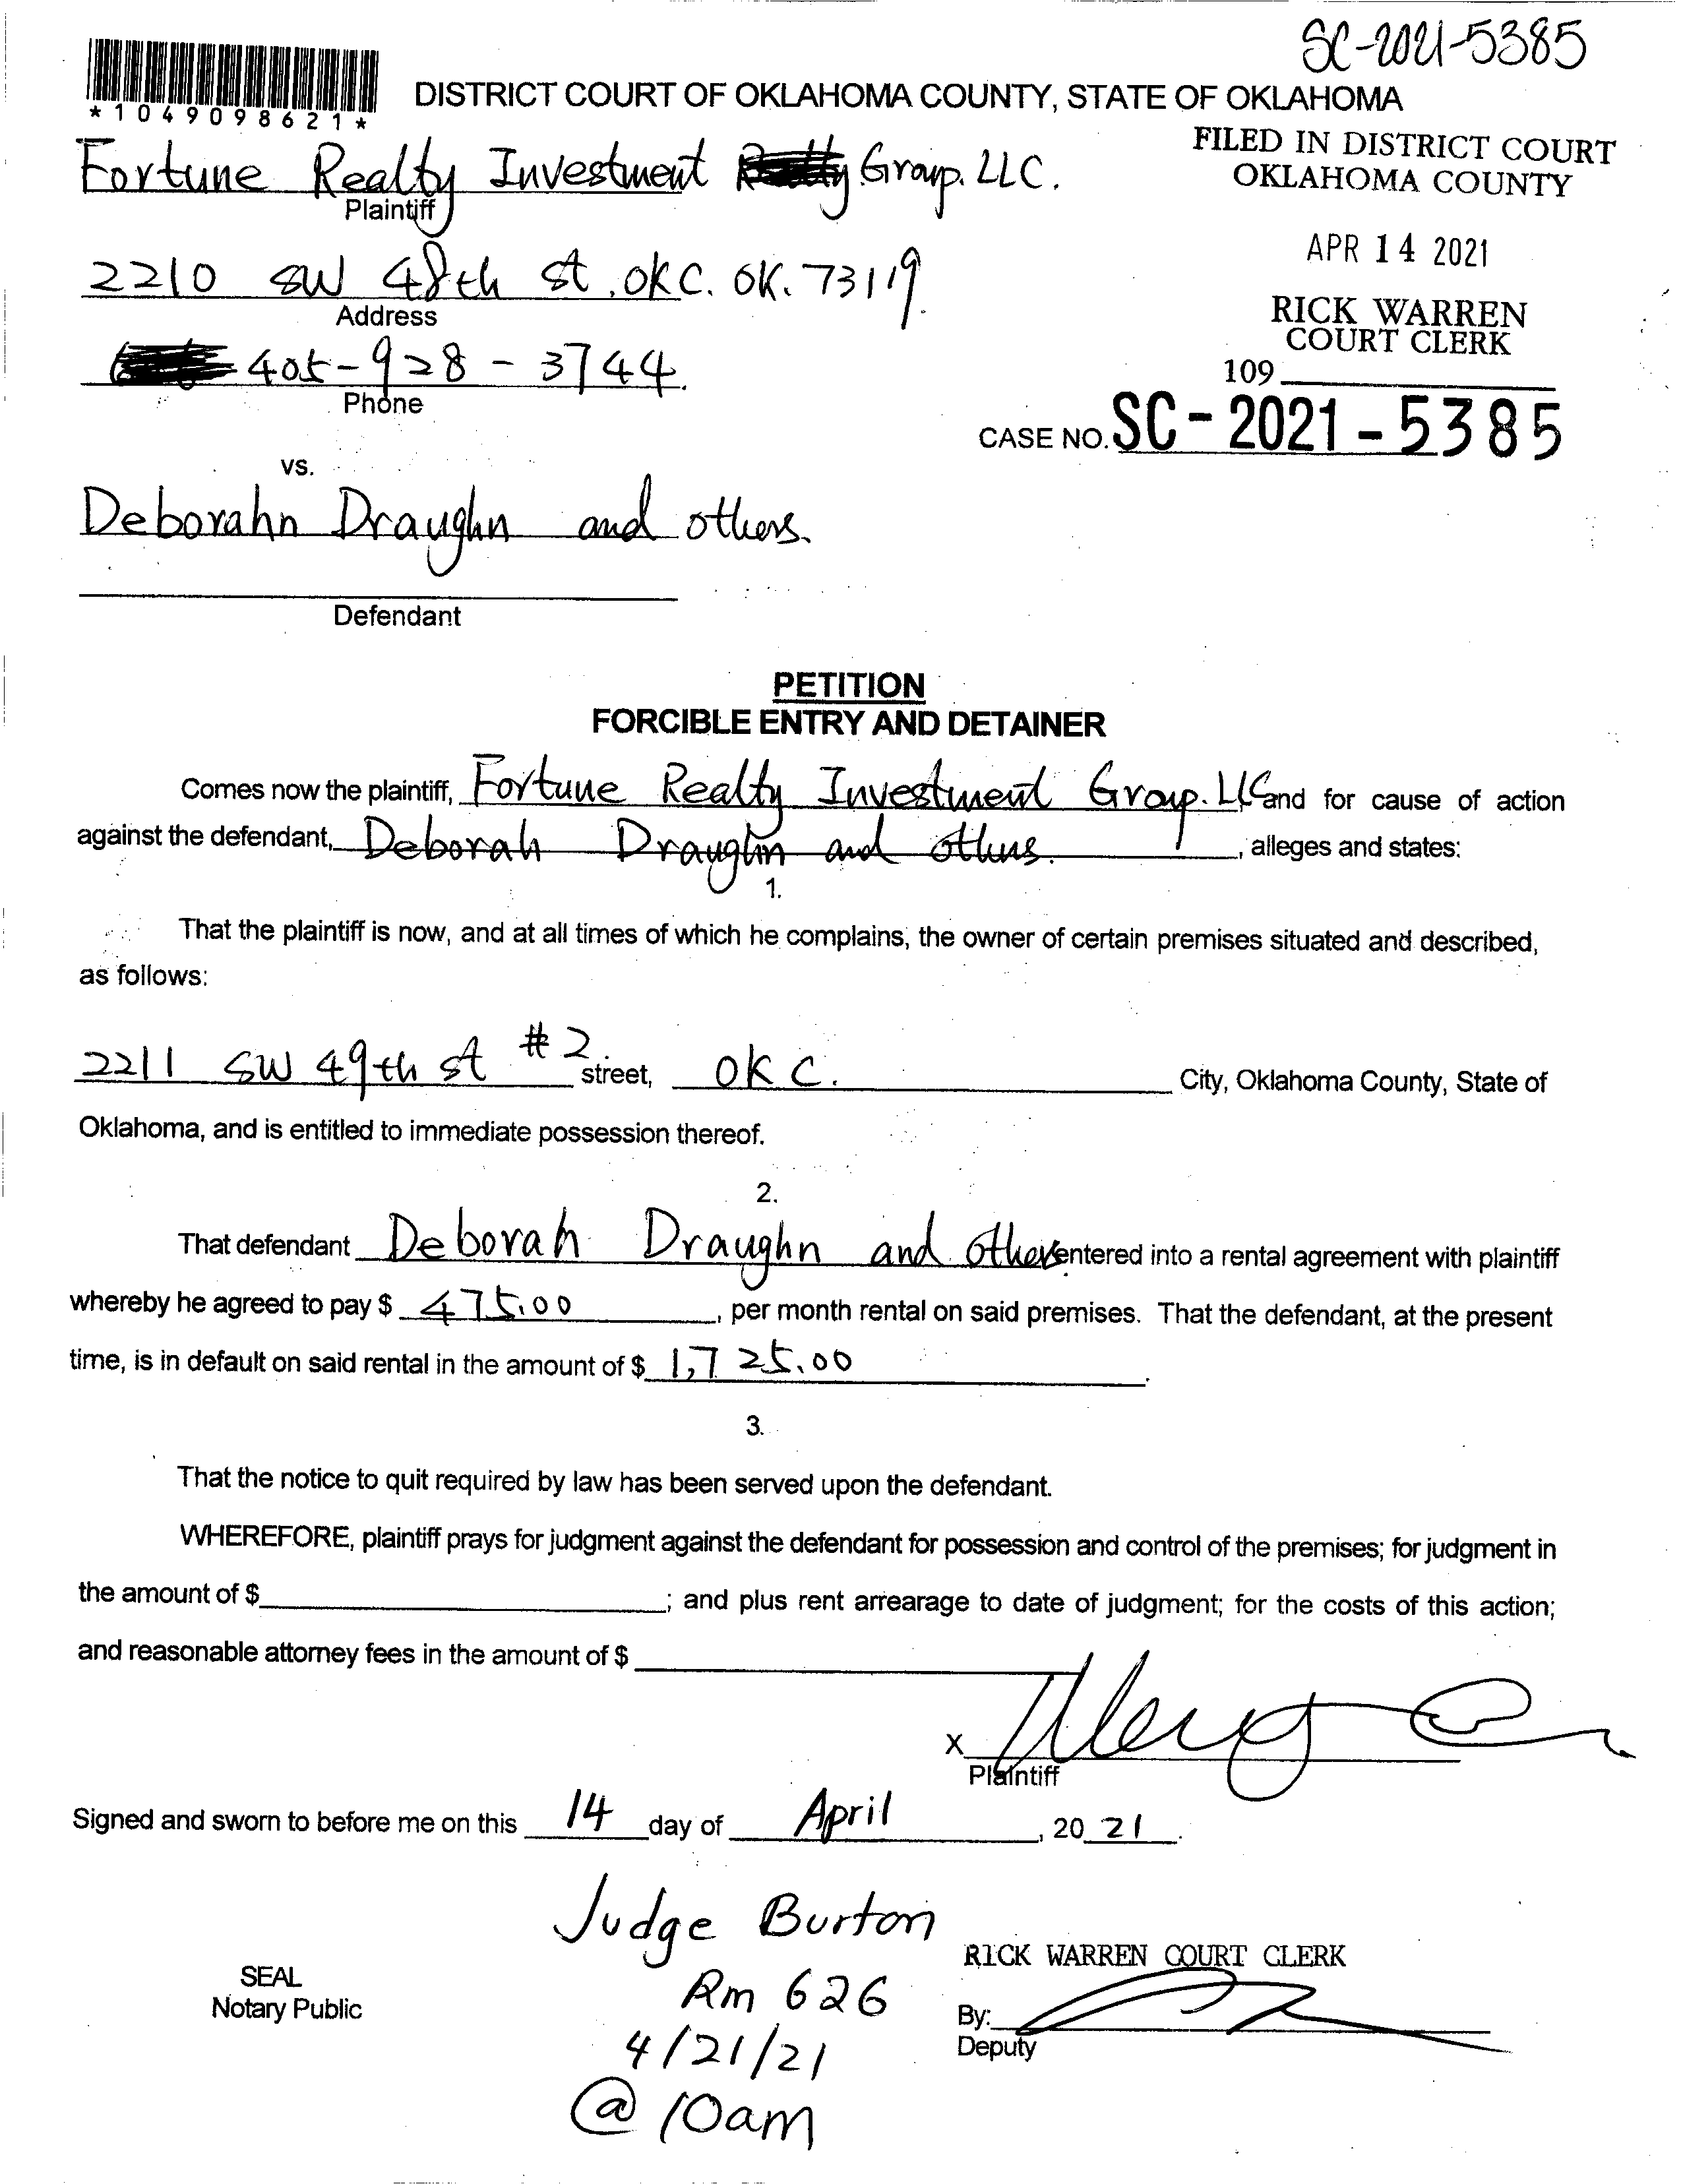 SC-2021-5385
*1049098621*
DISTRICT COURT OF OKLAHOMA COUNTY, STATE OF OKLAHOMA
FILED IN DISTRICT COURT
OKLAHOMA COUNTY
Fortune Realty Investment Realty Group. LLC.
Plaintiff
APR 14 2021
2210 SW 48th st. OKC. OK. 73119.
Address
RICK WARREN
COURT CLERK
405-928-3744.
Phone
109
CASE NO. SC-2021-5385
vs.
Deborahn Draughn and others.
Defendant
PETITION
FORCIBLE ENTRY AND DETAINER
Comes now the plaintiff, Fortune Realty Investment Group. LLC and for cause of action
against the defendant, Deborah Draughn and others. , alleges and states:
1.
That the plaintiff is now, and at all times of which he complains, the owner of certain premises situated and described,
as follows:
2211 SW 49th st #2 street, OKC. City, Oklahoma County, State of
Oklahoma, and is entitled to immediate possession thereof.
2.
That defendant Deborah Draughn and others entered into a rental agreement with plaintiff
whereby he agreed to pay $ 475.00 , per month rental on said premises. That the defendant, at the present
time, is in default on said rental in the amount of $ 1,725.00 .
3.
That the notice to quit required by law has been served upon the defendant.
WHEREFORE, plaintiff prays for judgment against the defendant for possession and control of the premises; for judgment in
the amount of $ ; and plus rent arrearage to date of judgment; for the costs of this action;
and reasonable attorney fees in the amount of $
X
Plaintiff
Signed and sworn to before me on this 14 day of April , 20 21 .
Judge Burton
RICK WARREN COURT CLERK
SEAL
Notary Public
Rm 626
By:
Deputy
4/21/21
@ 10am